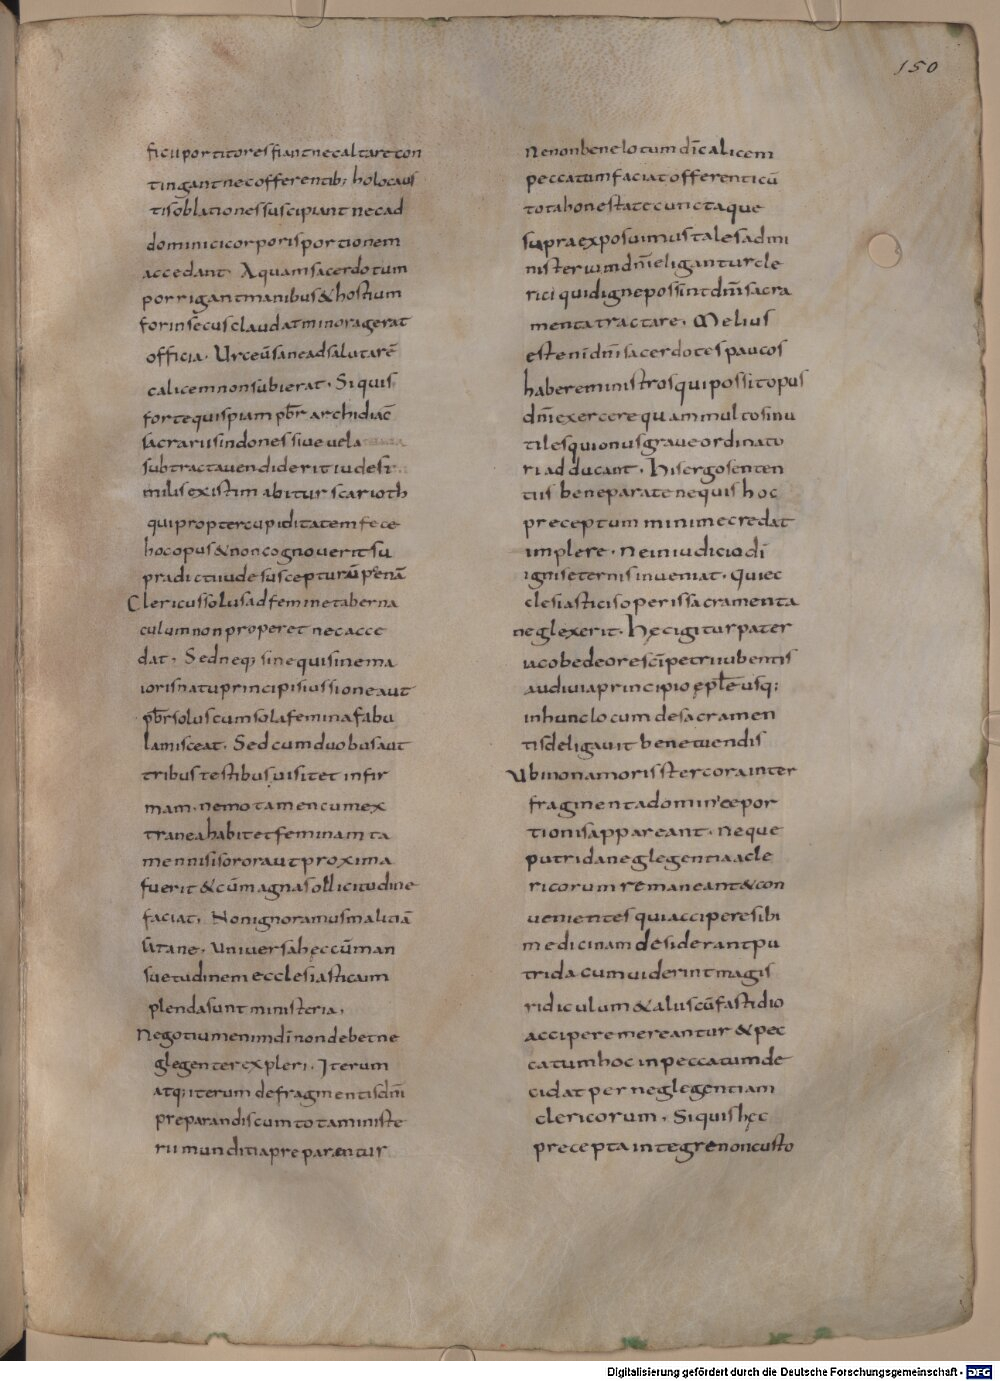 150
ficii portitores fiant nec altare con
tingant nec offerentib; holocaus
tis oblationes suscipiant nec ad
dominici corporis portionem
accedant. Aquam sacerdotum
porrigant manibus & hostium
forinsecus claudat minora gerat
officia. Urceu sane ad salutare
calicem non subierat. Siquis
forte quispiam pbr archidiac
sacrarii sindones sive vela
subtracta vendiderit iude si
milis existimabitur scarioth
qui propter cupiditatem fece
hoc opus & non cognoverit su
pradicti iude suscepturu penā
Clericus solus ad femine taberna
culum non properet nec acce
dat. Sed neq; sine qui sine ma
ioris natu principis iussione aut
pbr solus cum sola femina fabu
la misceat. Sed cum duobus aut
tribus testibus visitet infir
mam. nemo tamen cum ex
tranea habitet feminam ta
men nisi soror aut proxima
fuerit & cū magna sollicitudine
faciat. Non ignoramus malitiā
satane. Universa hęc cū man
suetudinem ecclesiastica im
plenda sunt ministeria.
Negotium enim dī non debet ne
glegenter expleri. Iterum
atq; iterum de fragmentis dnī
preparandis cum tota ministe
rii munditia preparentur
Ne non bene lotum dnī calicem
peccatum faciat offerenti cū
tota honestate cuncta que
supra exposuimus tales ad mi
nisterium dnī eligantur cle
rici qui digne possint dnī sacra
menta tractare. Melius
est enī dnī sacerdotes paucos
habere ministros qui possīt opus
dnī exercere quam multos inu
tiles qui onus grave ordinato
ri adducant. His ergo senten
tiis bene parate nequis hoc
preceptum minime credat
implere. ne in iudicio dī
ignis eternis inveniat. Qui ec
clesiasticis operis sacramenta
neglexerit. Hęc igitur pater
iacobe de ore scī petri iubentis
audivi a principio eple usq;
in hunc locum de sacramen
tis deligavit bene tuendis
Ubi non amoris stercora inter
fragmenta dominicę por
tionis appareant. neque
putrida neglegentia cle
ricorum remaneant & con
venientes qui accipere sibi
medicinam desiderant pu
trida cum viderint magis
ridiculum & alus cū fastidio
accipere mereantur & pec
catum hoc in peccatum de
cidat per neglegentiam
clericorum. Siquis hęc
precepta integre non custo
Digitalisierung gefördert durch die Deutsche Forschungsgemeinschaft - DFG